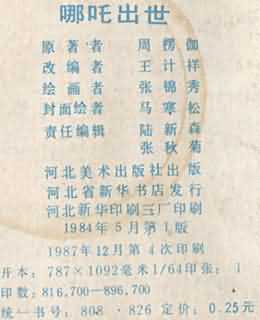 哪吒出世
原著者 周楞伽
改编者 王计祥
绘画者 张锦秀
封面绘者 马寒松
责任编辑 陆新森
张秋菊
河北美术出版社出版
河北省新华书店发行
河北新华印刷三厂印刷
1984年5月第1版
1987年12月第4次印刷
开本：787×1092毫米1/64印张：1
印数：816,700—896,700
统一书号：808·826 定价：0.25元